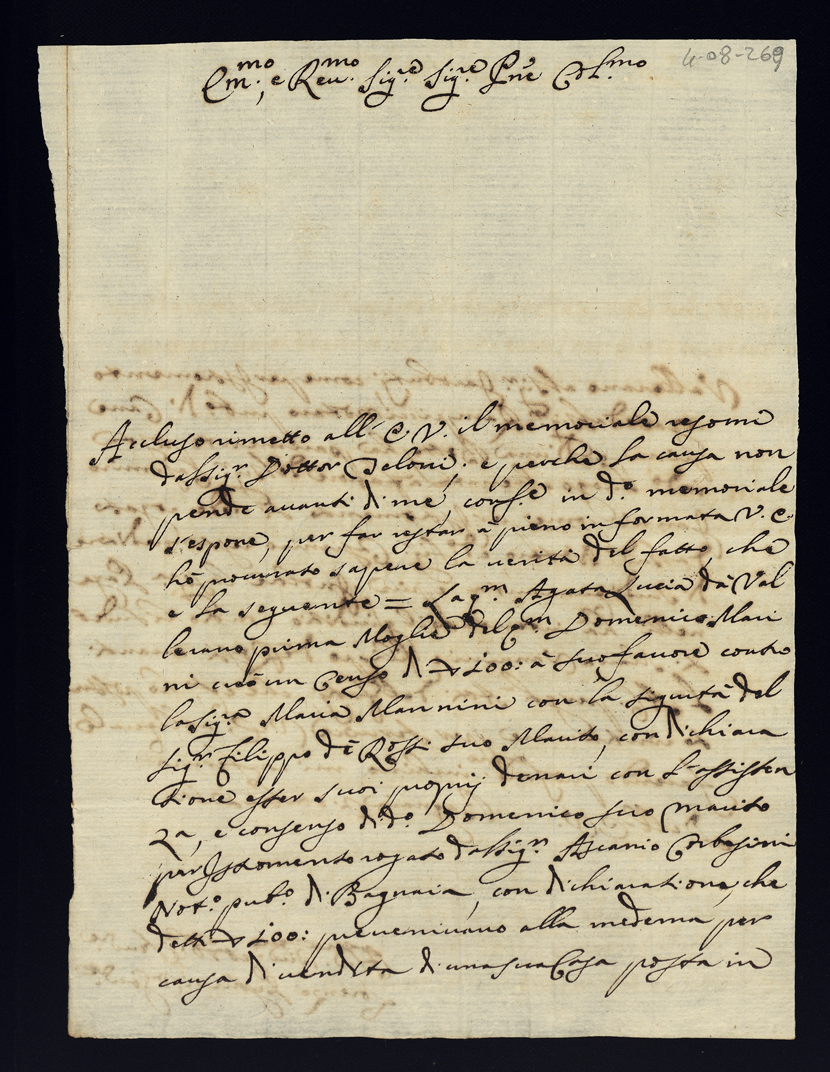 4-08-269
Em.mo, e Reu.mo Sig.re Sig.re Pne Col.mo
Accluso rimetto all' E. V. il memoriale
dal Sig.r Dottor Peloni; e perche la causa non
pende auanti di me, conf.e in d.o memoriale
s'espone, per far restar à pieno informata V. E.
hò procurato sapere la verità del fatto, che
e la seguente = La q.m Agata Lucia dà Val
lerano prima Moglie del q.m Domenico Mari
ni creò un Censo di ∇ 100: à suo fauore contro
la Sig.ra Maria Mannini con la sigurtà del
Sig.r Filippo dè Rossi suo Marito, con dichiara
tione esser suoi proprij denari con l'assisten
za, e consenso di d.o Domenico suo marito
per Istromento rogato dal Sig.r Ascanio
Not.o pub.o di Bagnaia, con dichiaratione, che
detti ∇ 100: preueniuano alla medema per
causa di uendita di una sua Casa posta in